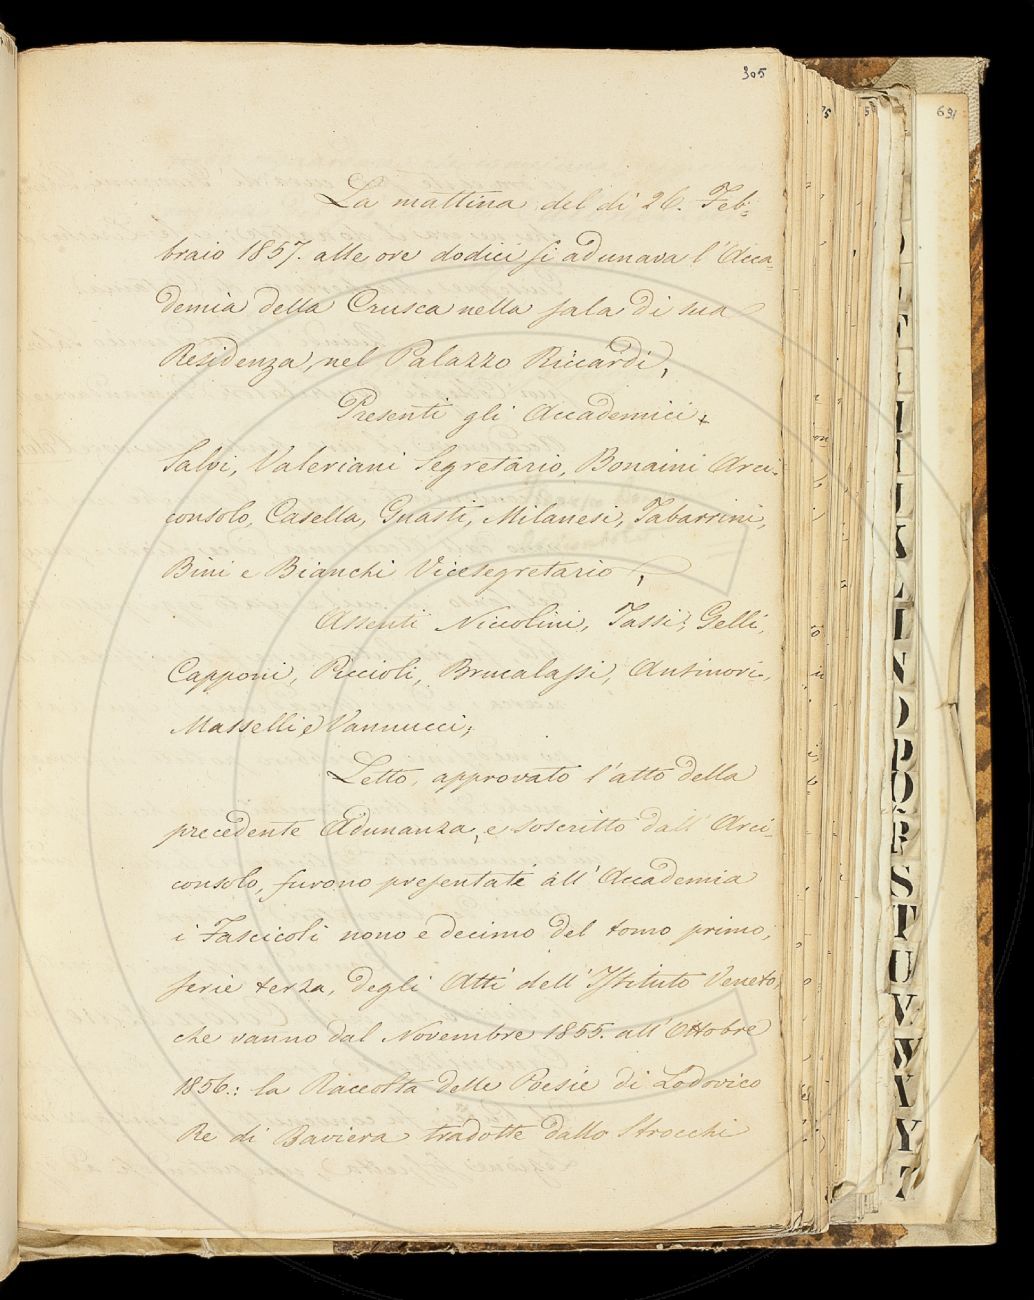 305
La mattina del dì 26. Feb-
braio 1857. alle ore dodici si adunava l'Acca-
demia della Crusca nella sala di sua
Residenza, nel Palazzo Riccardi,
Presenti gli Accademici
Salvi, Valeriani Segretario, Bonaini Arci-
consolo, Casella, Guasti, Milanesi, Tabarrini,
Bini e Bianchi Vicesegretario,
Assenti Niccolini, Tassi, Gelli,
Capponi, Piccioli, Brucalassi, Antinori,
Masselli e Vannucci;
Letto, approvato l'atto della
precedente Adunanza, e soscritto dall'Arci-
consolo, furono presentati all'Accademia
i Fascicoli nono e decimo del tomo primo,
serie terza, degli Atti dell'Istituto Veneto,
che vanno dal Novembre 1855. all'Ottobre
1856.: la Raccolta delle Poesie di Lodovico
Re di Baviera tradotte dallo Strocchi